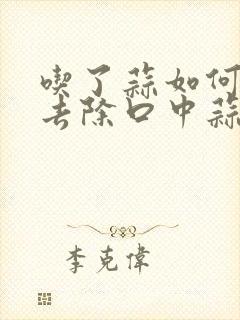 喫了蒜如何
去除口中蒜
李克偉